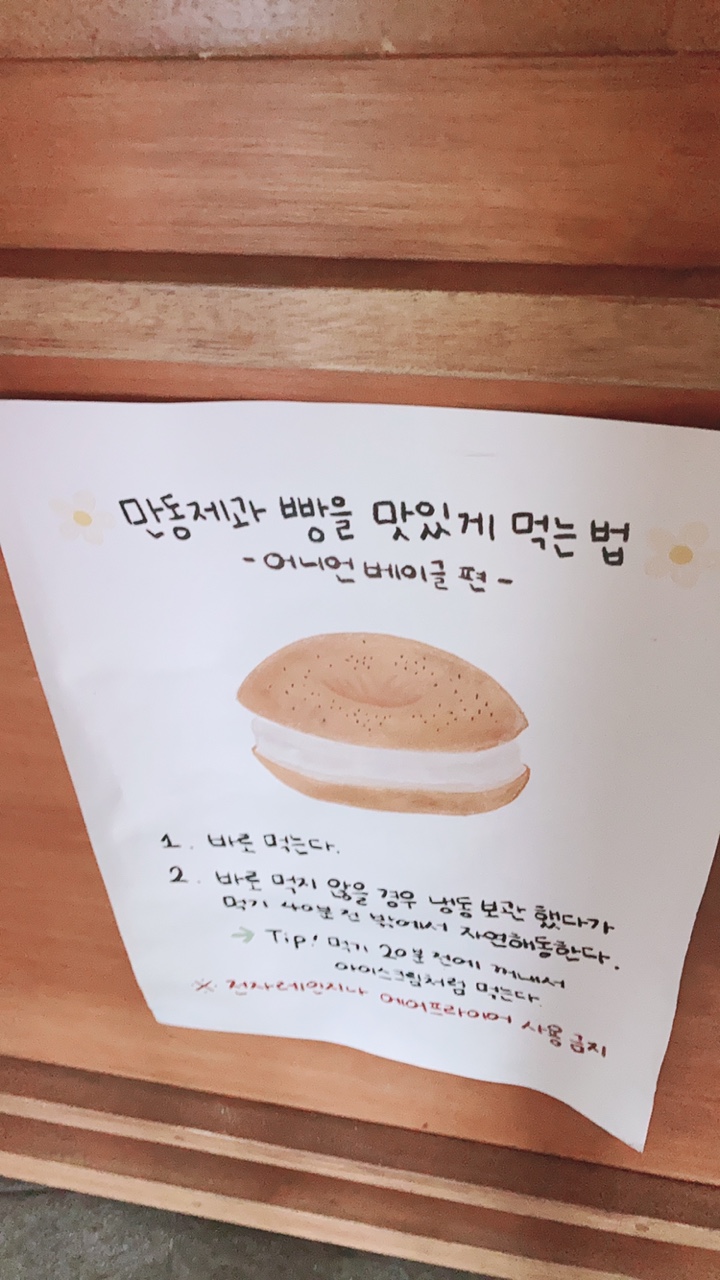 만동제과 빵을 맛있게 먹는 법
- 어니언 베이글 편 -
1. 바로 먹는다.
2. 바로 먹지 않을 경우 냉동보관 했다가
먹기 40분 전 밖에서 자연해동한다.
→ Tip! 먹기 20분 전에 꺼내서
아이스크림처럼 먹는다.
※ 전자레인지나 에어프라이어 사용 금지